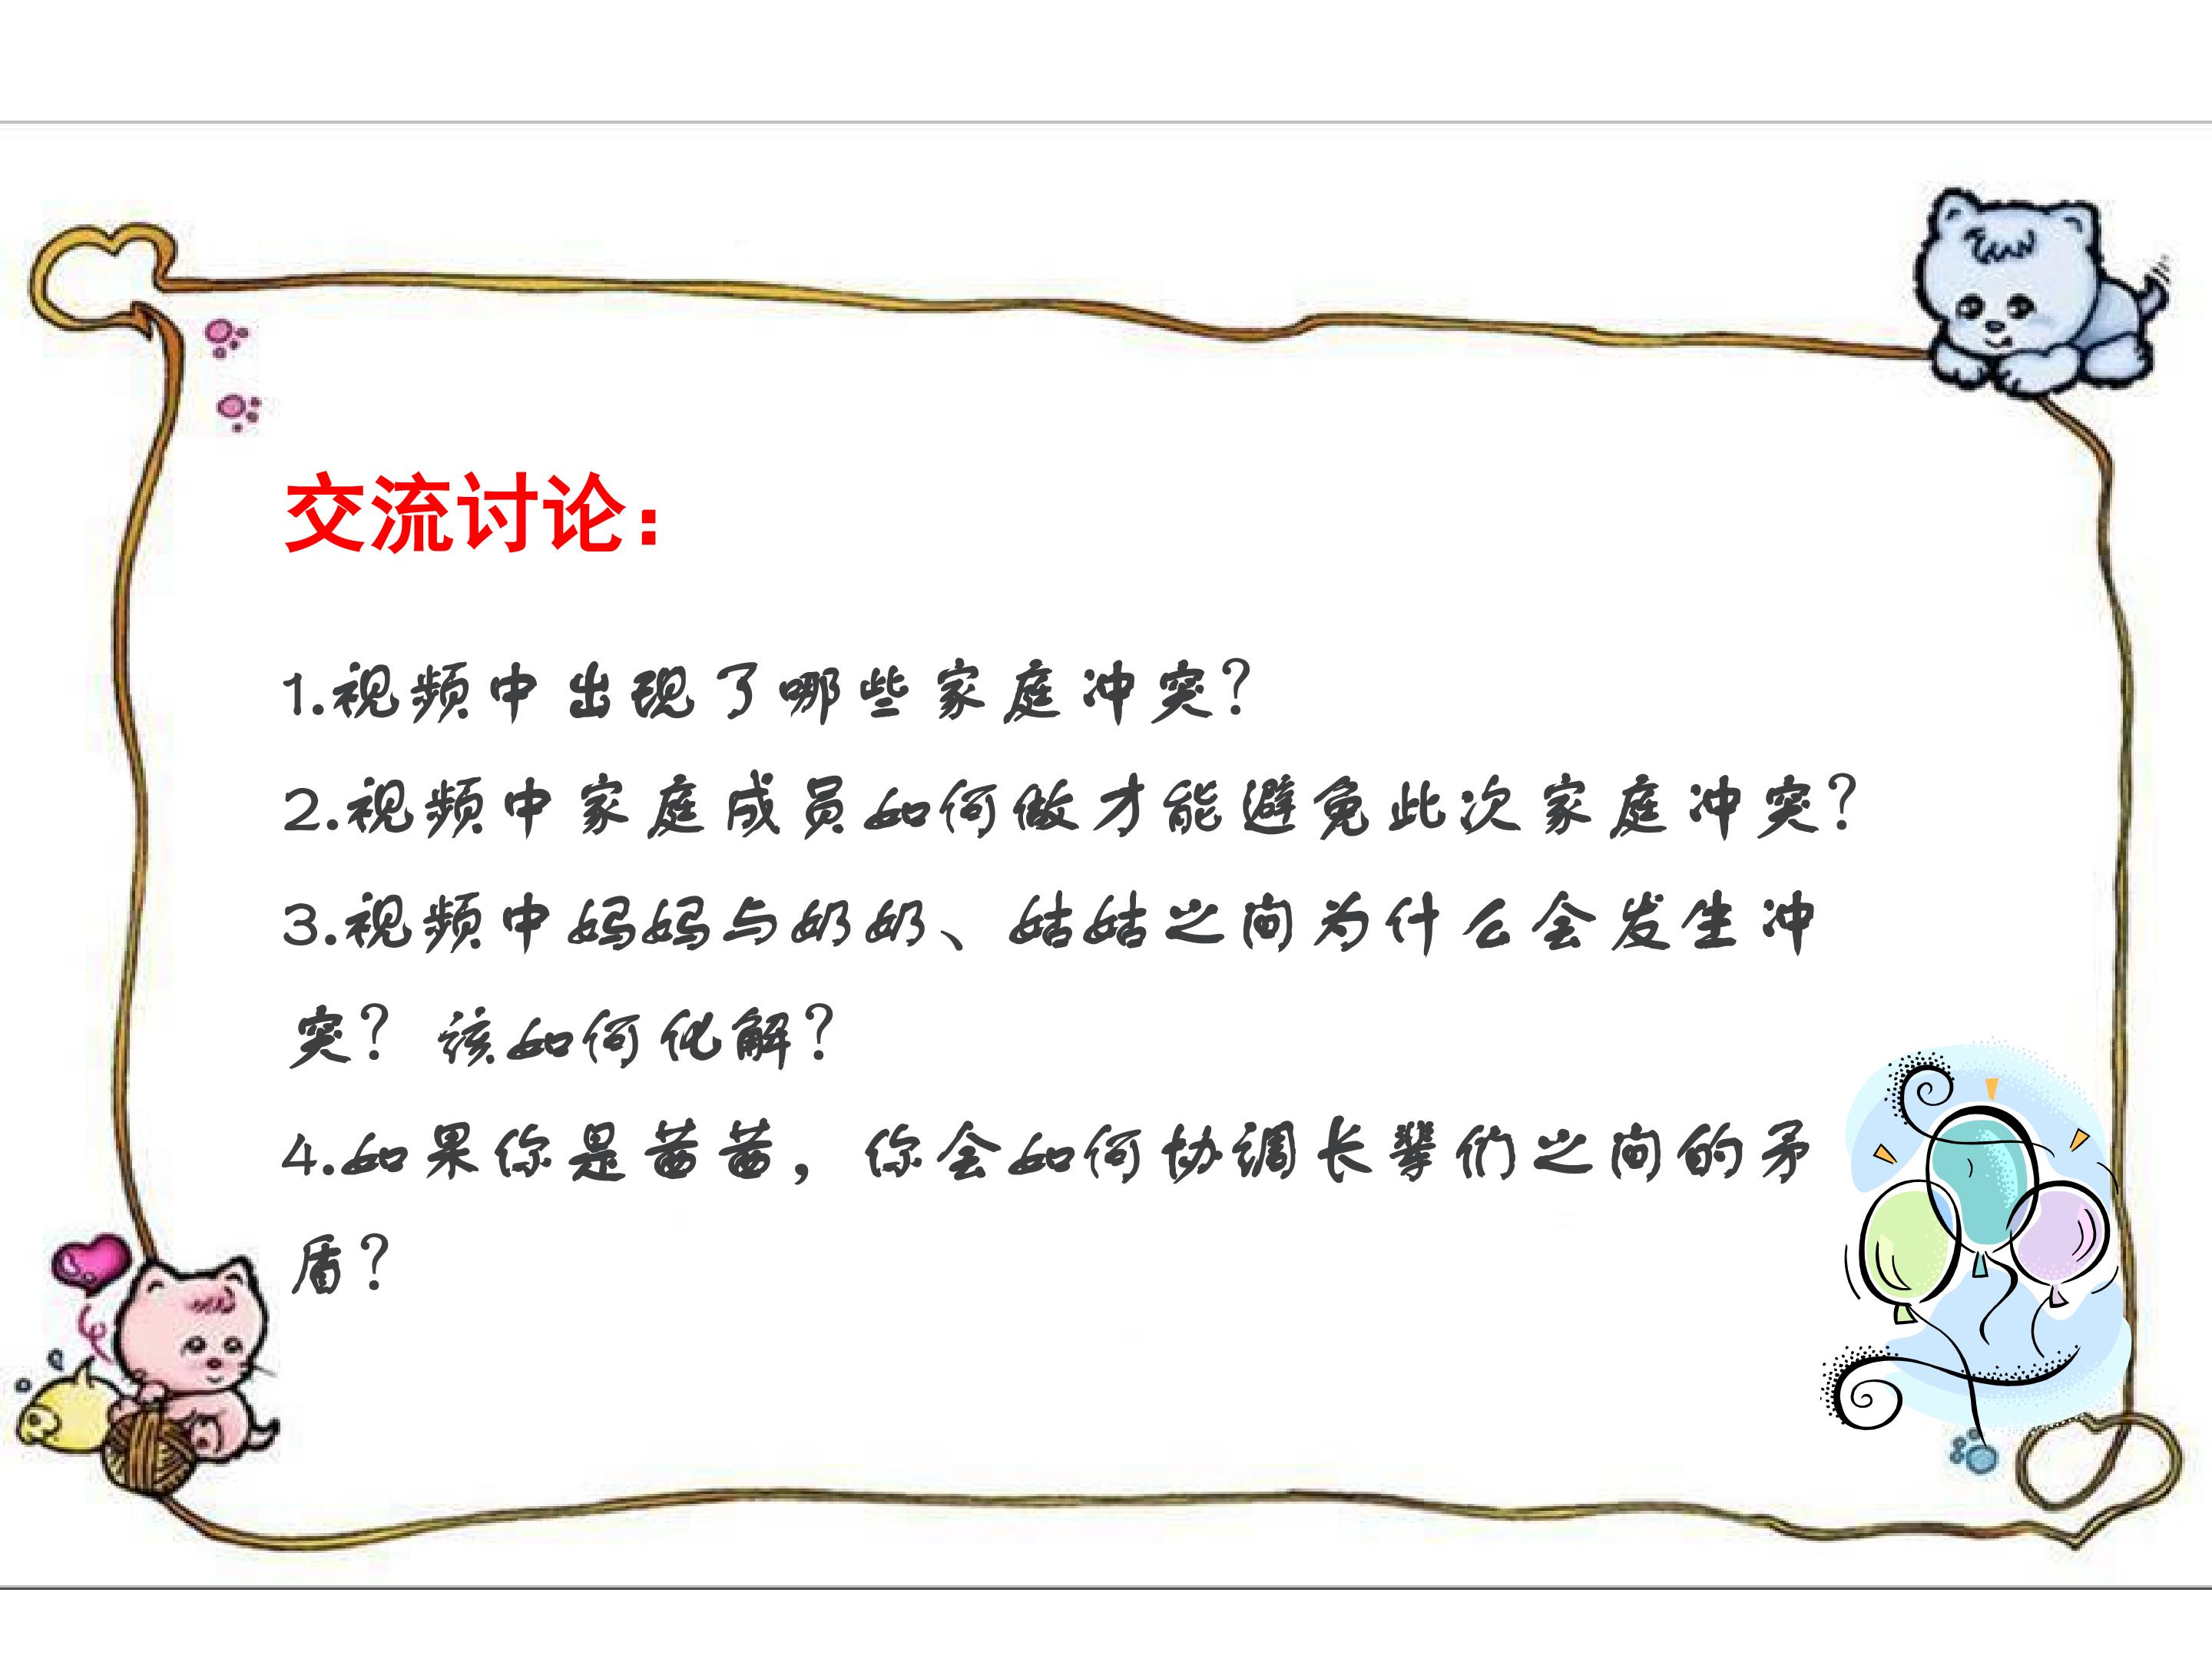 交流讨论：
1.视频中出现了哪些家庭冲突？
2.视频中家庭成员如何做才能避免此次家庭冲突？
3.视频中妈妈与奶奶、姑姑之间为什么会发生冲
突？该如何化解？
4.如果你是苗苗，你会如何协调长辈们之间的矛
盾？